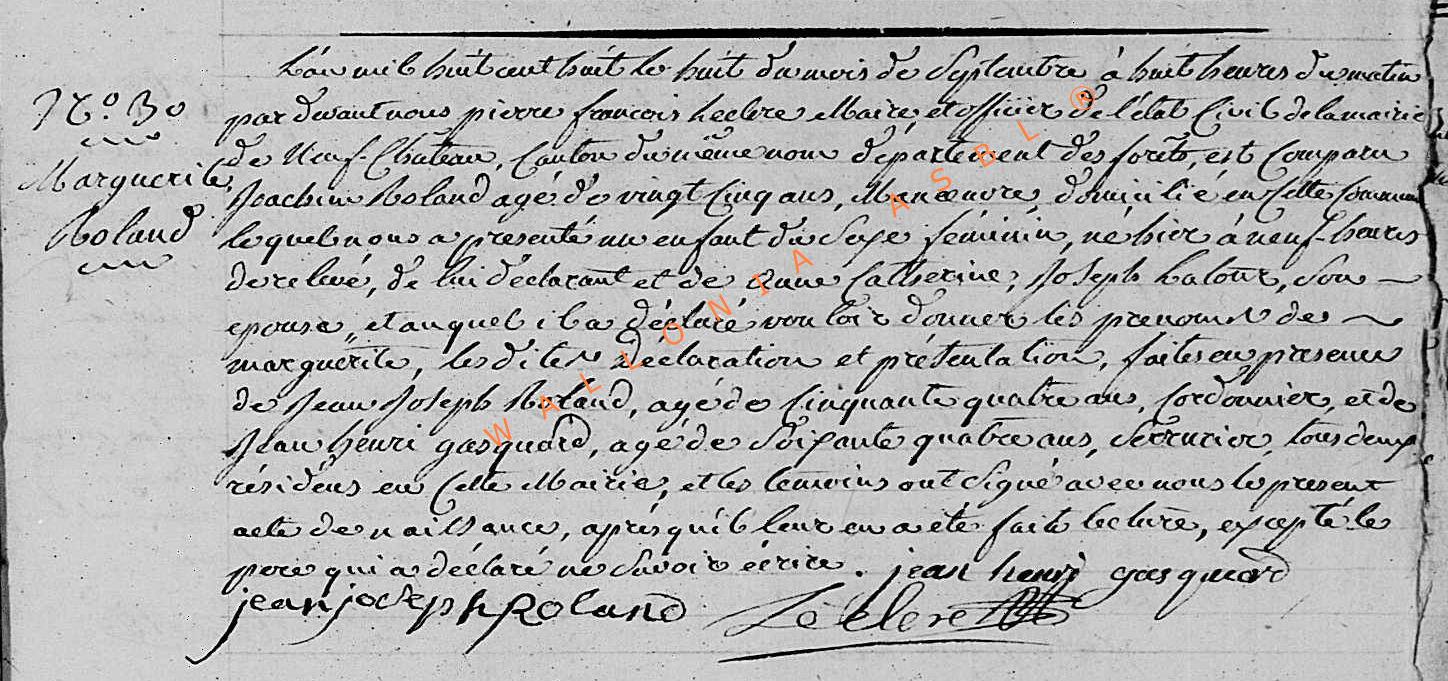 N.o 30
Marguerite
Roland
L'an mil huit cent huit le huit du mois de Septembre à huit heures du matin
par devant nous pierre françois Leclere Maire et officier de l'état Civil de la mairie
de Neuf-Château, Canton du même nom département des forêts, est Comparu
Joachim Roland agé de vingt Cinq ans, Manœuvre, domicilié en Cette Commune
lequel nous a présenté un enfant du Sexe féminin, né hier à neuf-heures
de relevé, de lui déclarant et de Anne Catherine, Joseph Latour, Son
epouse, et auquel il a déclaré vouloir donner les prenoms de
marguerite, les dites déclaration et présentation, faites en presence
de Jean Joseph Roland, agé de Cinquante quatre ans, Cordonnier, et de
Jean henri gasquard, agé de Soixante quatre ans, Serrurier, tous deux
résidens en Cette Mairie, et les temoins ont Signé avec nous le present
acte de naissance, après qu'il leur en a été faite lecture, excepté le
pere qui a déclaré ne Savoir écrire. jean henri gasquard
jean joseph Roland Leclere
WALLONIA ASBL ®